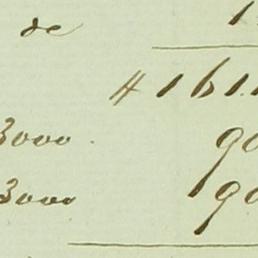 de 1
4161.
3000. 90
3000 90